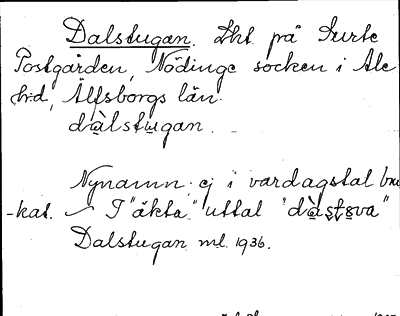 Dalstugan. Lht på Surte
Postgården, Nödinge socken i Ale
hrd, Älfsborgs län.
dàlstugan.
Nynamn ej i vardagstal bru-
-kat. I "äkta" uttal "dàstova"
Dalstugan ml. 1936.